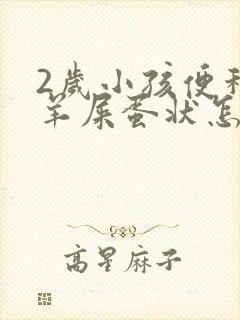 2岁小孩便秘
羊屎蛋状怎
高星麻子